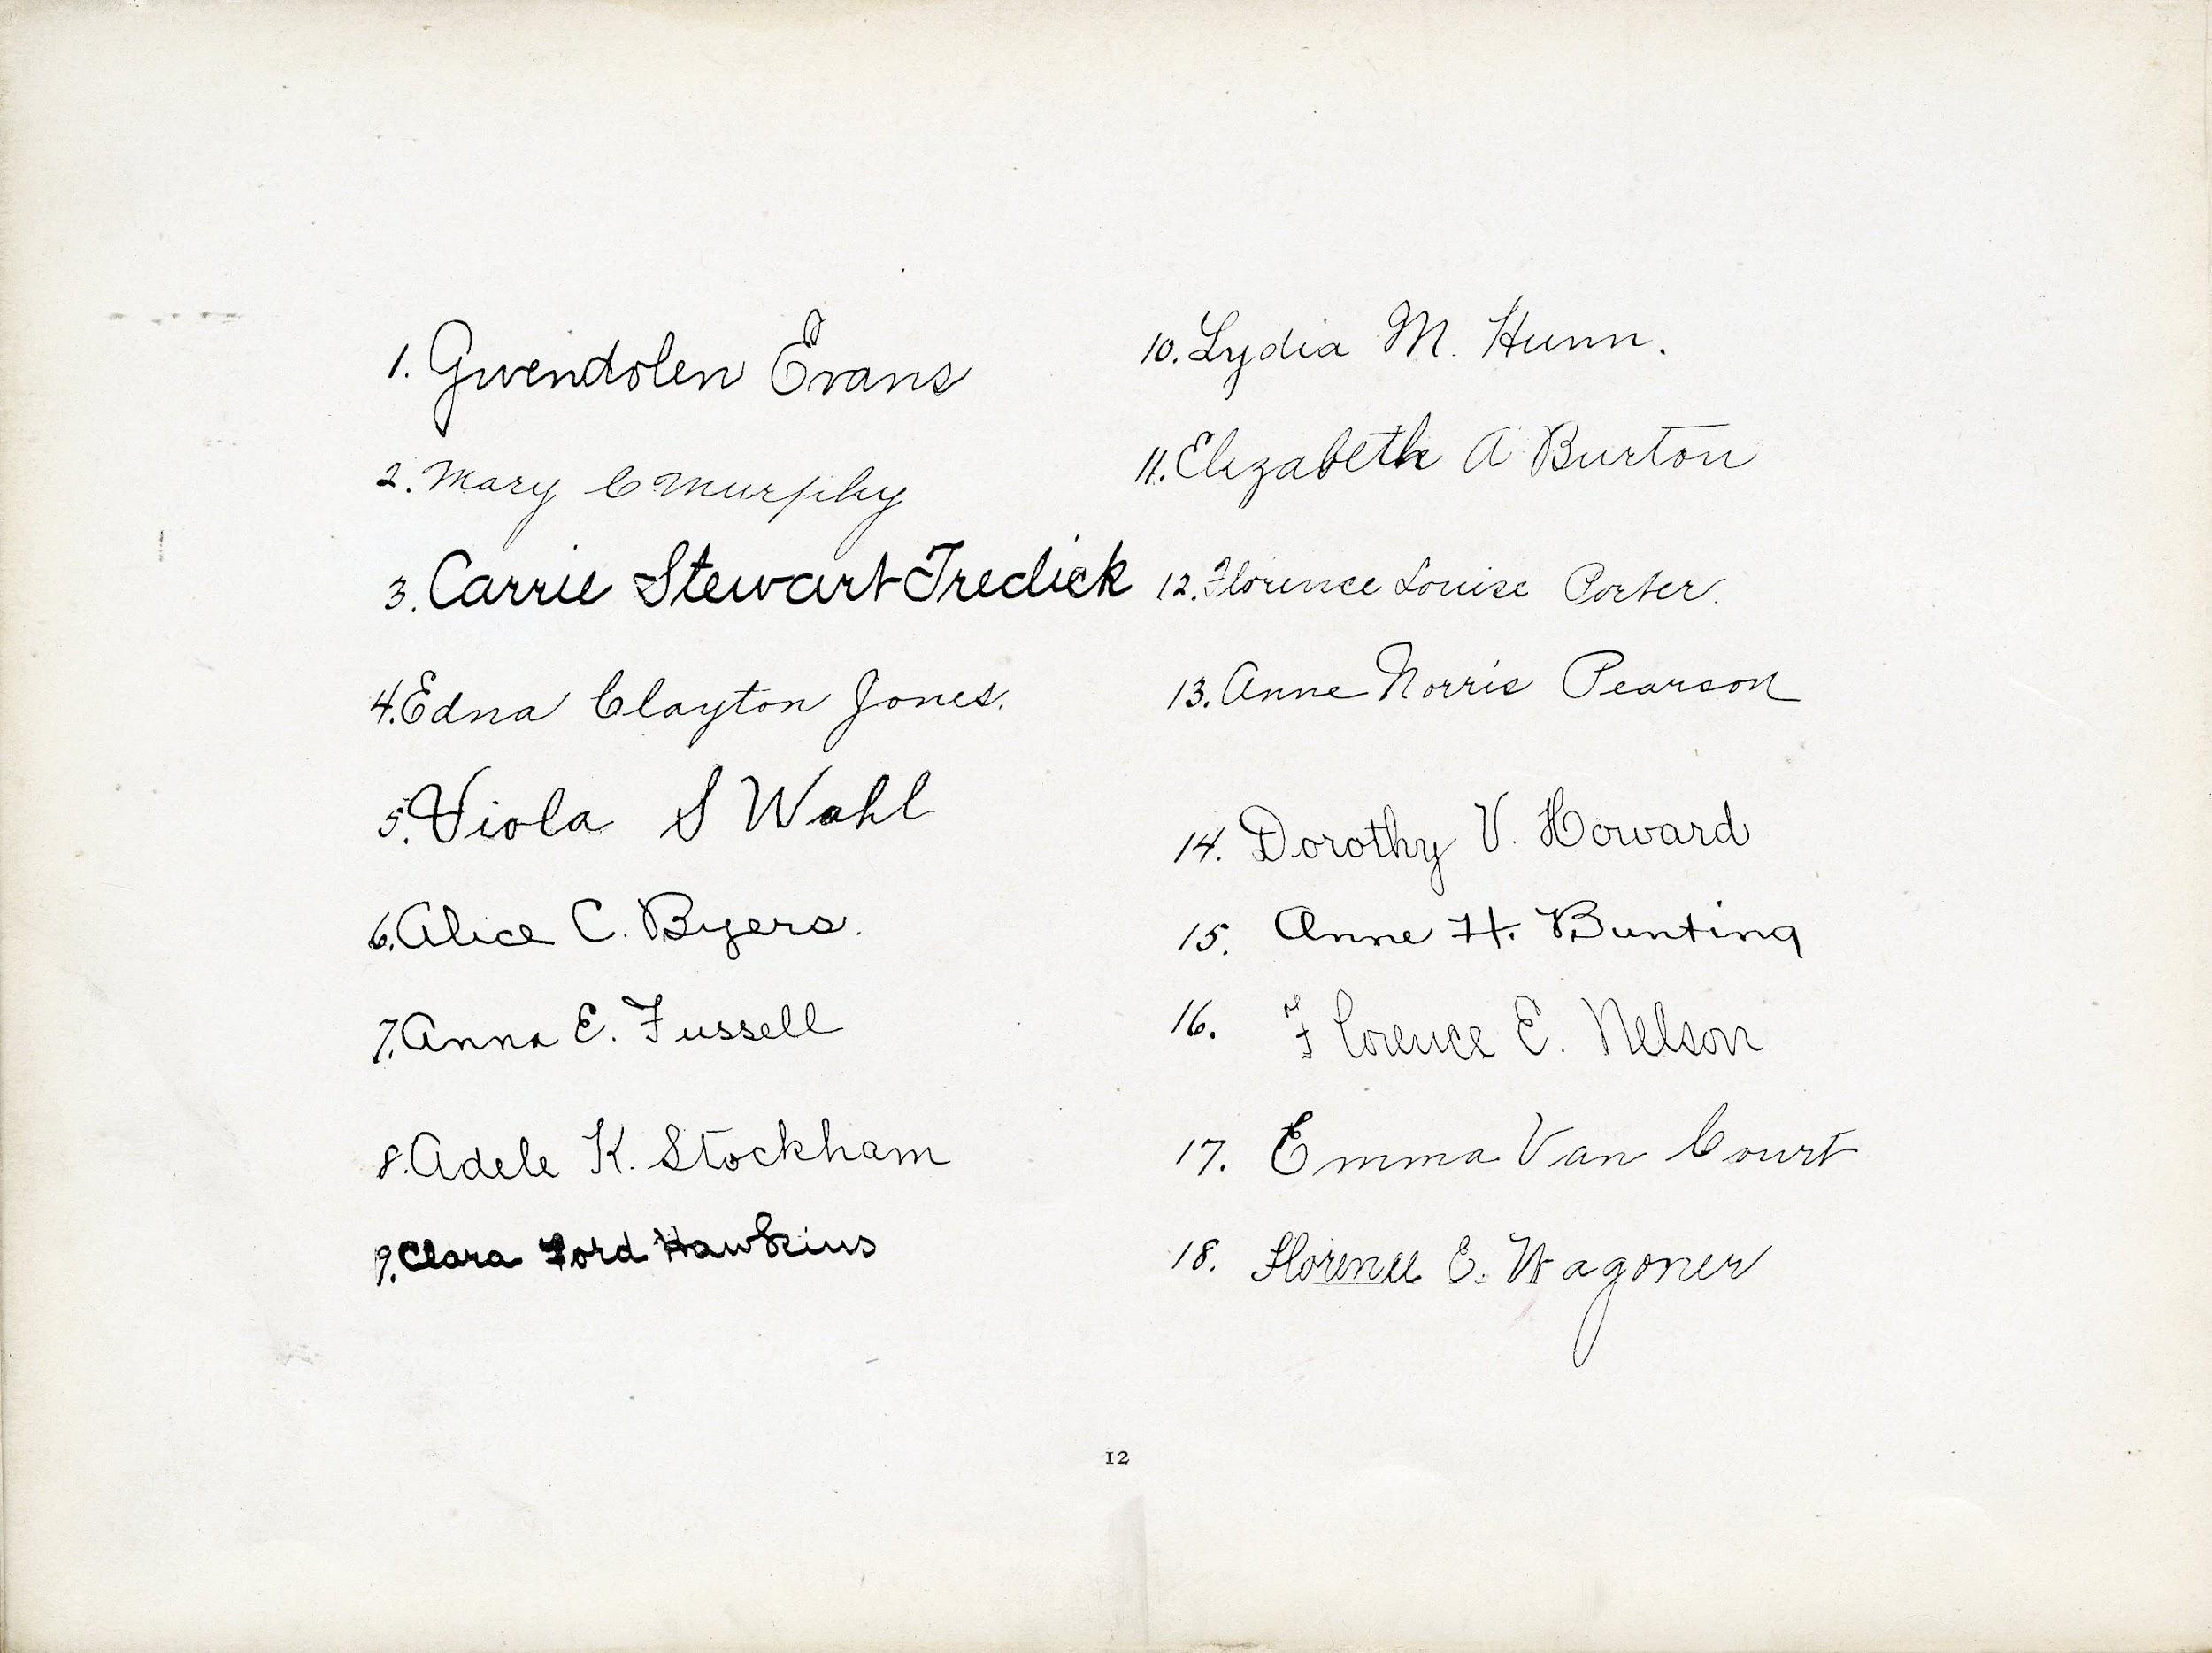 1. Gwendolen Evans
2. Mary C Murphy
3. Carrie Stewart Tredick
4. Edna Clayton Jones.
5. Viola S Wahl
6. Alice C. Byers.
7. Anna E. Fussell
8. Adele K. Stockham
9. Clara Ford Hawkins
10. Lydia M. Hunn.
11. Elizabeth A Burton
12. Florence Louise Porter.
13. Anne Norris Pearson
14. Dorothy V. Howard
15. Anne H. Bunting
16. Florence E. Nelson
17. Emma Van Court
18. Florence E. Wagoner
12